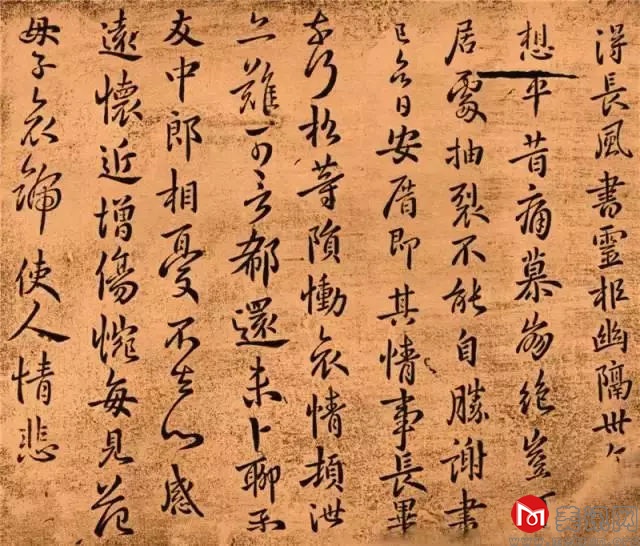 得長風書靈柩幽隔卅
想平昔痛慕崩絕豈
居處抽裂不能自勝謝書
已日安厝即其情事長畢
奈何松等隕慟哀情頓泄
亦難可言郗還未卜聊示
友中郎相憂不去心感
遠懷近增傷惋每見范
母子哀號使人情悲